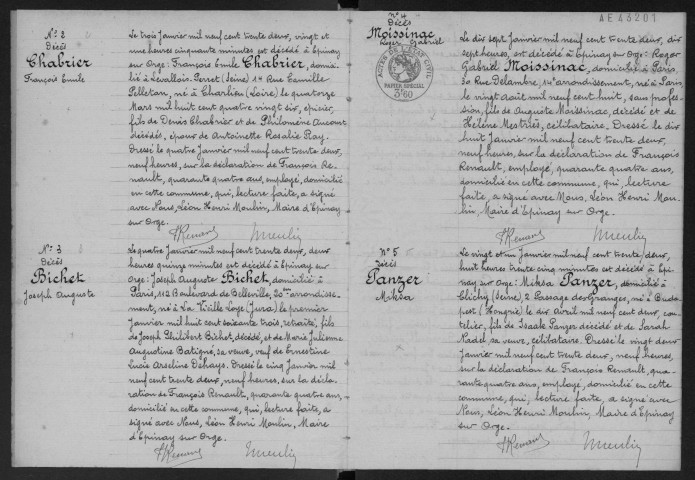 N° 2
Décès
Chabrier
François Emile
Le trois Janvier mil neuf cent trente deux, vingt et
une heures cinquante minutes est décédé à Epinay
sur Orge: François Emile Chabrier, domici-
lié à Levallois-Perret (Seine) 1 Rue Camille
Pelletan, né à Charlieu (Loire) le quatorze
Mars mil huit cent quatre vingt six, épicier,
fils de Denis Chabrier et de Philomène Aucourt
décédés, époux de Antoinette Rosalie Ray.
Dressé le quatre Janvier mil neuf cent trente deux,
neuf heures, sur la déclaration de François Re-
nault, quarante quatre ans, employé, domicilié
en cette commune, qui, lecture faite, a signé
avec Nous, Léon Henri Moulin, Maire d'Epinay
sur Orge.
N° 3
Décès
Bichet
Joseph Auguste
Le quatre Janvier mil neuf cent trente deux, deux
heures quinze minutes est décédé à Epinay sur
Orge: Joseph Auguste Bichet, domicilié à
Paris, 112 Boulevard de Belleville, 20e arrondisse-
ment, né à La Vieille Loye (Jura) le premier
Janvier mil huit cent soixante trois, retraité, fils
de Joseph Philibert Bichet, décédé, et de Marie Julienne
Augustine Batigne, sa veuve, veuf de Ernestine
Lucie Arseline Dehays. Dressé le cinq Janvier mil
neuf cent trente deux, neuf heures, sur la décla-
ration de François Renault, quarante quatre ans,
domicilié en cette commune, qui, lecture faite, a
signé avec Nous, Léon Henri Moulin, Maire
d'Epinay sur Orge.
N° 4
Décès
Moissinac
Roger Gabriel
ACTES CIVIL
PAPIER SPÉCIAL
3F60
AE43201
Le dix sept Janvier mil neuf cent trente deux, dix
sept heures, est décédé à Epinay sur Orge: Roger
Gabriel Moissinac, domicilié à Paris,
30 Rue Delambre 14e arrondissement, né à Paris
le vingt Août mil neuf cent huit, sans profes-
sion, fils de Auguste Moissinac, décédé et de
Hélène Mestriès, célibataire. Dressé le dix
huit Janvier mil neuf cent trente deux,
neuf heures, sur la déclaration de François
Renault, employé, quarante quatre ans,
domicilié en cette commune, qui, lecture
faite, a signé avec Nous, Léon Henri Mou-
lin, Maire d'Epinay sur Orge.
N° 5
Décès
Panzer
Miksa
Le vingt et un Janvier mil neuf cent trente deux,
huit heures trente cinq minutes est décédé à Epi-
nay sur Orge: Miksa Panzer, domicilié à
Clichy (Seine), 2 Passage des Granges, né à Buda-
pest (Hongrie) le dix Avril mil neuf cent deux, cou-
telier, fils de Isaak Panzer décédé et de Sarah
Nadel sa veuve, célibataire. Dressé le vingt deux
Janvier mil neuf cent trente deux, neuf heures,
sur la déclaration de François Renault, qua-
rante quatre ans, employé, domicilié en cette
commune, qui, lecture faite, a signé avec
Nous, Léon Henri Moulin, Maire d'Epinay
sur Orge.